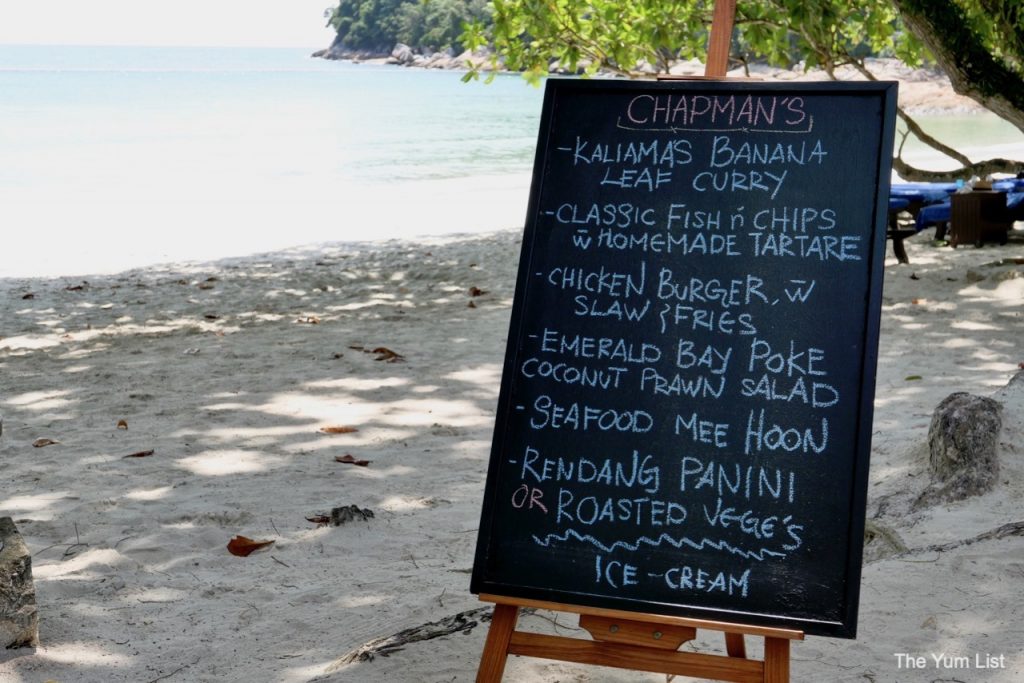 CHAPMAN'S
-KALIAMA'S BANANA
LEAF CURRY
-CLASSIC FISH ń CHIPS
w̄ HOMEMADE TARTARE
-CHICKEN BURGER, w̄
SLAW & FRIES
-EMERALD BAY POKE
COCONUT PRAWN SALAD
-SEAFOOD MEE HOON
-RENDANG PANINI
OR ROASTED VEGE'S
ICE-CREAM
The Yum List